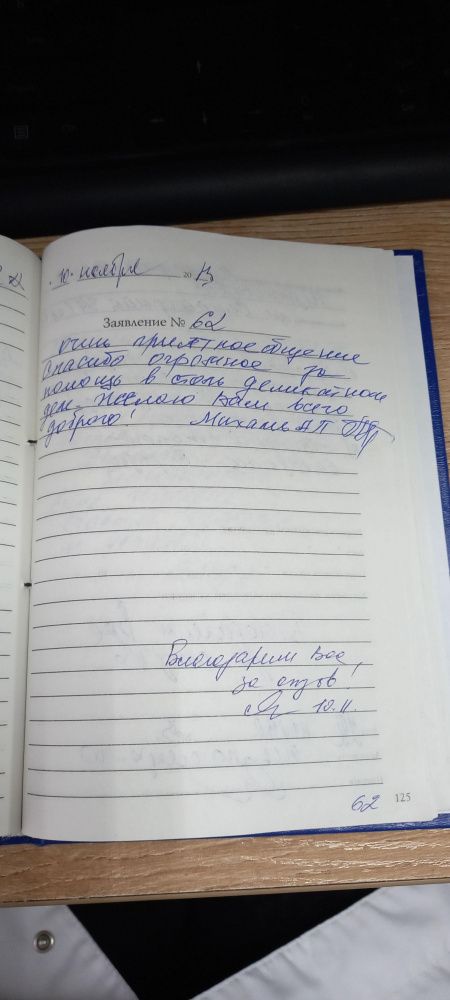 "10" ноября 20
Заявление № 62
Очень приятное общение
Спасибо огромное за
помощь в столь деликатном
деле. Желаю Вам всего
доброго! Михаль А П
Благодарим Вас
за отзыв!
10.11.
62 125